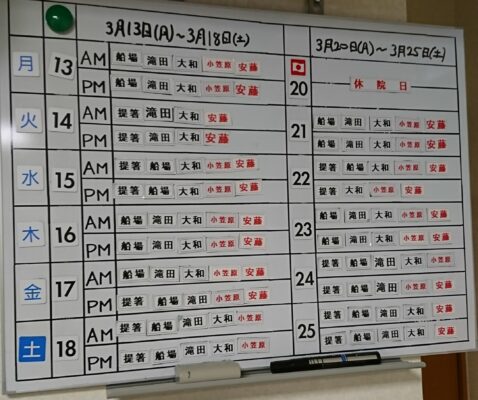 3月13日(月)～3月18日(土)
3月20日(月)～3月25日(土)
月 13 AM 船場 滝田 大和 小笠原 安藤
PM 船場 滝田 大和 小笠原 安藤
20 休院日
火 14 AM 提箸 滝田 大和 安藤
PM 提箸 滝田 大和 安藤
21 船場 滝田 大和 小笠原 安藤
船場 滝田 大和 小笠原 安藤
水 15 AM 提箸 船場 大和 小笠原 安藤
PM 提箸 船場 大和 小笠原 安藤
22 提箸 船場 大和 小笠原 安藤
提箸 大和 小笠原 安藤
木 16 AM 船場 滝田 大和 小笠原 安藤
PM 船場 滝田 大和 小笠原 安藤
23 船場 滝田 大和 小笠原 安藤
船場 滝田 大和 小笠原 安藤
金 17 AM 船場 滝田 大和 小笠原 安藤
PM 提箸 船場 滝田 小笠原 安藤
24 提箸 船場 滝田 大和 小笠原
提箸 船場 滝田 小笠原 安藤
土 18 AM 提箸 船場 滝田 大和 小笠原
PM 提箸 船場 滝田 大和 小笠原
25 提箸 船場 滝田 大和 安藤
提箸 船場 滝田 大和 安藤